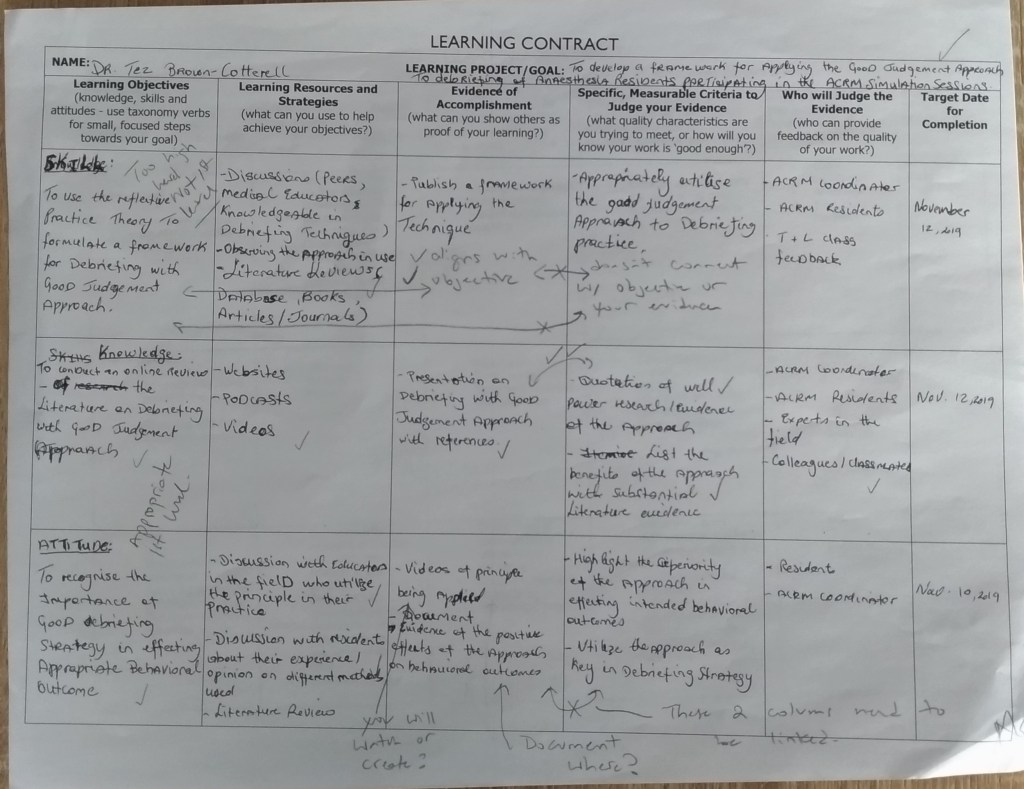 LEARNING CONTRACT
NAME: DR. Tez Brown-Cotterell
LEARNING PROJECT/GOAL: To develop a framework for Applying the Good Judgement Approach
To debriefing of Anaesthesia Residents Participating in the ACRM Simulation Sessions.
Learning Objectives
(knowledge, skills and
attitudes - use taxonomy verbs
for small, focused steps
towards your goal)
Learning Resources and
Strategies
(what can you use to help
achieve your objectives?)
Evidence of
Accomplishment
(what can you show others as
proof of your learning?)
Specific, Measurable Criteria to
Judge your Evidence
(what quality characteristics are
you trying to meet, or how will you
know your work is 'good enough'?)
Who will Judge the
Evidence
(who can provide
feedback on the quality
of your work?)
Target Date for
Completion
Skills:
To use the reflective
Practice Theory To
formulate a framework
for Debriefing with
Good Judgement
Approach.
Too high
level
- Discussions (Peers,
Medical Educators
Knowledgeable in
Debriefing Techniques)
- Observing the Approach in use
- Literature Reviews
Database, Books,
Articles/Journals)
- Publish a framework
for Applying the
Technique
aligns with
objective
- Appropriately utilise
the good judgement
Approach to Debriefing
practice.
doesn't connect
w/ objective or
your evidence
- ACRM Coordinator
- ACRM Residents
- T + L class
feedback
November
12, 2019
Skills Knowledge:
To conduct an online Review
- Of research the
Literature on Debriefing
with Good Judgement
Approach
Appropriate
level
- Websites
- Podcasts
- Videos
- Presentation on
Debriefing with Good
Judgement Approach
with references.
- Quotation of well
power research/Evidence
of the Approach
- Itemise List the
benefits of the Approach
with substantial
Literature evidence
- ACRM Coordinator
- ACRM Residents
- Experts in the
field
- Colleagues/Classmates
Nov. 12, 2019
ATTITUDE:
To recognise the
Importance of
Good debriefing
Strategy in effecting
Appropriate Behavioral
Outcome
- Discussion with Educators
in the field who utilize
the principle in their
Practice
- Discussion with residents
about their experience/
opinion on different methods
used
- Literature Review
- Videos of principle
being Applied
- Document
Evidence of the positive
effects of the Approach
on behavioural outcomes
you will
watch or
create?
Document
where?
- Highlight the Superiority
of the Approach in
effecting intended behavioral
outcomes
- Utilize the approach as
Key in Debriefing Strategy
These 2 columns need to
be linked.
- Resident
- ACRM Coordinator
Nov. 10, 2019